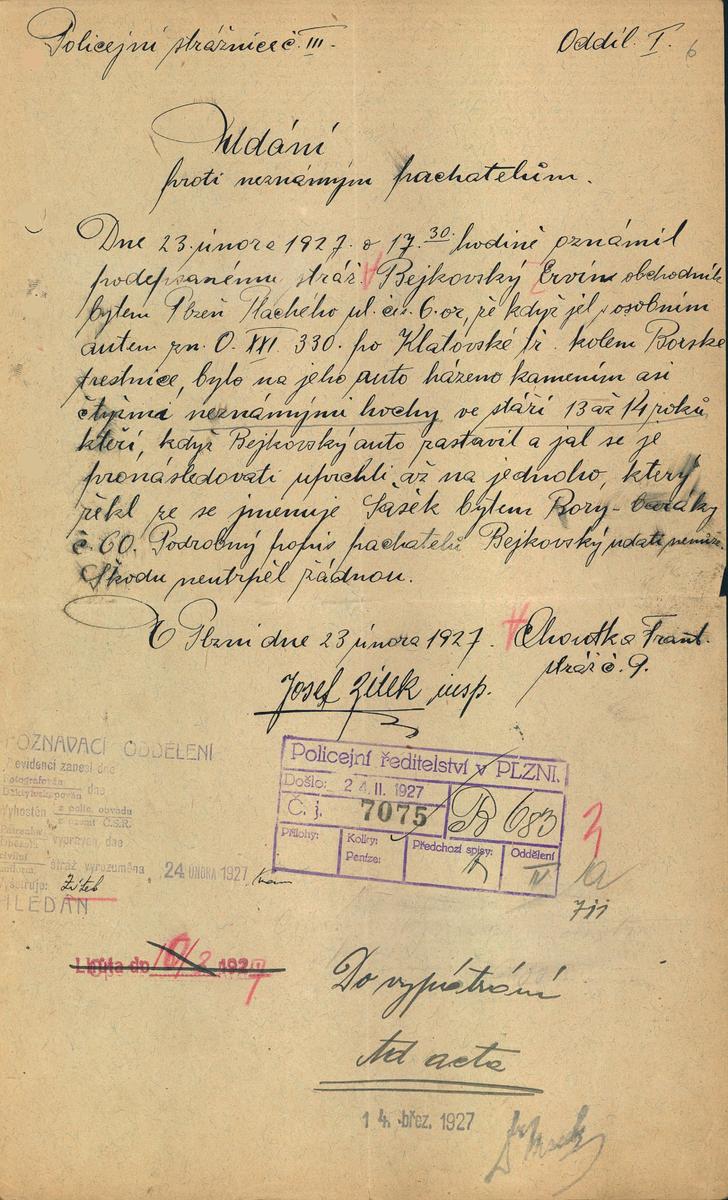 Policejní strážnice č. III.
Oddíl. I.
6
Udání
proti neznámým pachatelům.
Dne 23. února 1927. o 17.30. hodině oznámil
podepsanému stráž. Bejkovský Ervín obchodník
bytem Plzeň Tlachého ul. čís. 6. or, že když jel osobním
autem zn. O. XVI 330. po Klatovské tř. kolem Borské
trestnice, bylo na jeho auto házeno kamením asi
čtyřmi neznámými hochy ve stáří 13 až 14 roků
kteří, když Bejkovský auto zastavil a jal se je
pronásledovati uprchli až na jednoho, který
řekl že se jmenuje Sasěk bytem Bory-baráky
č. 60. Podrobný popis pachatelů Bejkovský udati nemůže
Škodu neutrpěl žádnou.
V Plzni dne 23 února 1927.
Choutka Frant.
stráž č. 9.
Josef Zítek insp.
POZNÁVACÍ ODDĚLENÍ
evidenci zanesl dne
Fotografován
Daktyloskopován dne
Vyhostěn z polic. obvodu
z území Č.S.R.
vypraven dne
stráž vyrozuměna
24 ÚNORA 1927
Zítek
HLEDÁN
Policejní ředitelství v PLZNI.
Došlo: 24. II. 1927
Č. j. 7075
B 683
Přílohy:
Kolky:
Peníze:
Předchozí spisy:
Oddělení
IV
a
711
Lhůta do 10/3 1927
Do vypátrání
Ad acta
14. břez. 1927